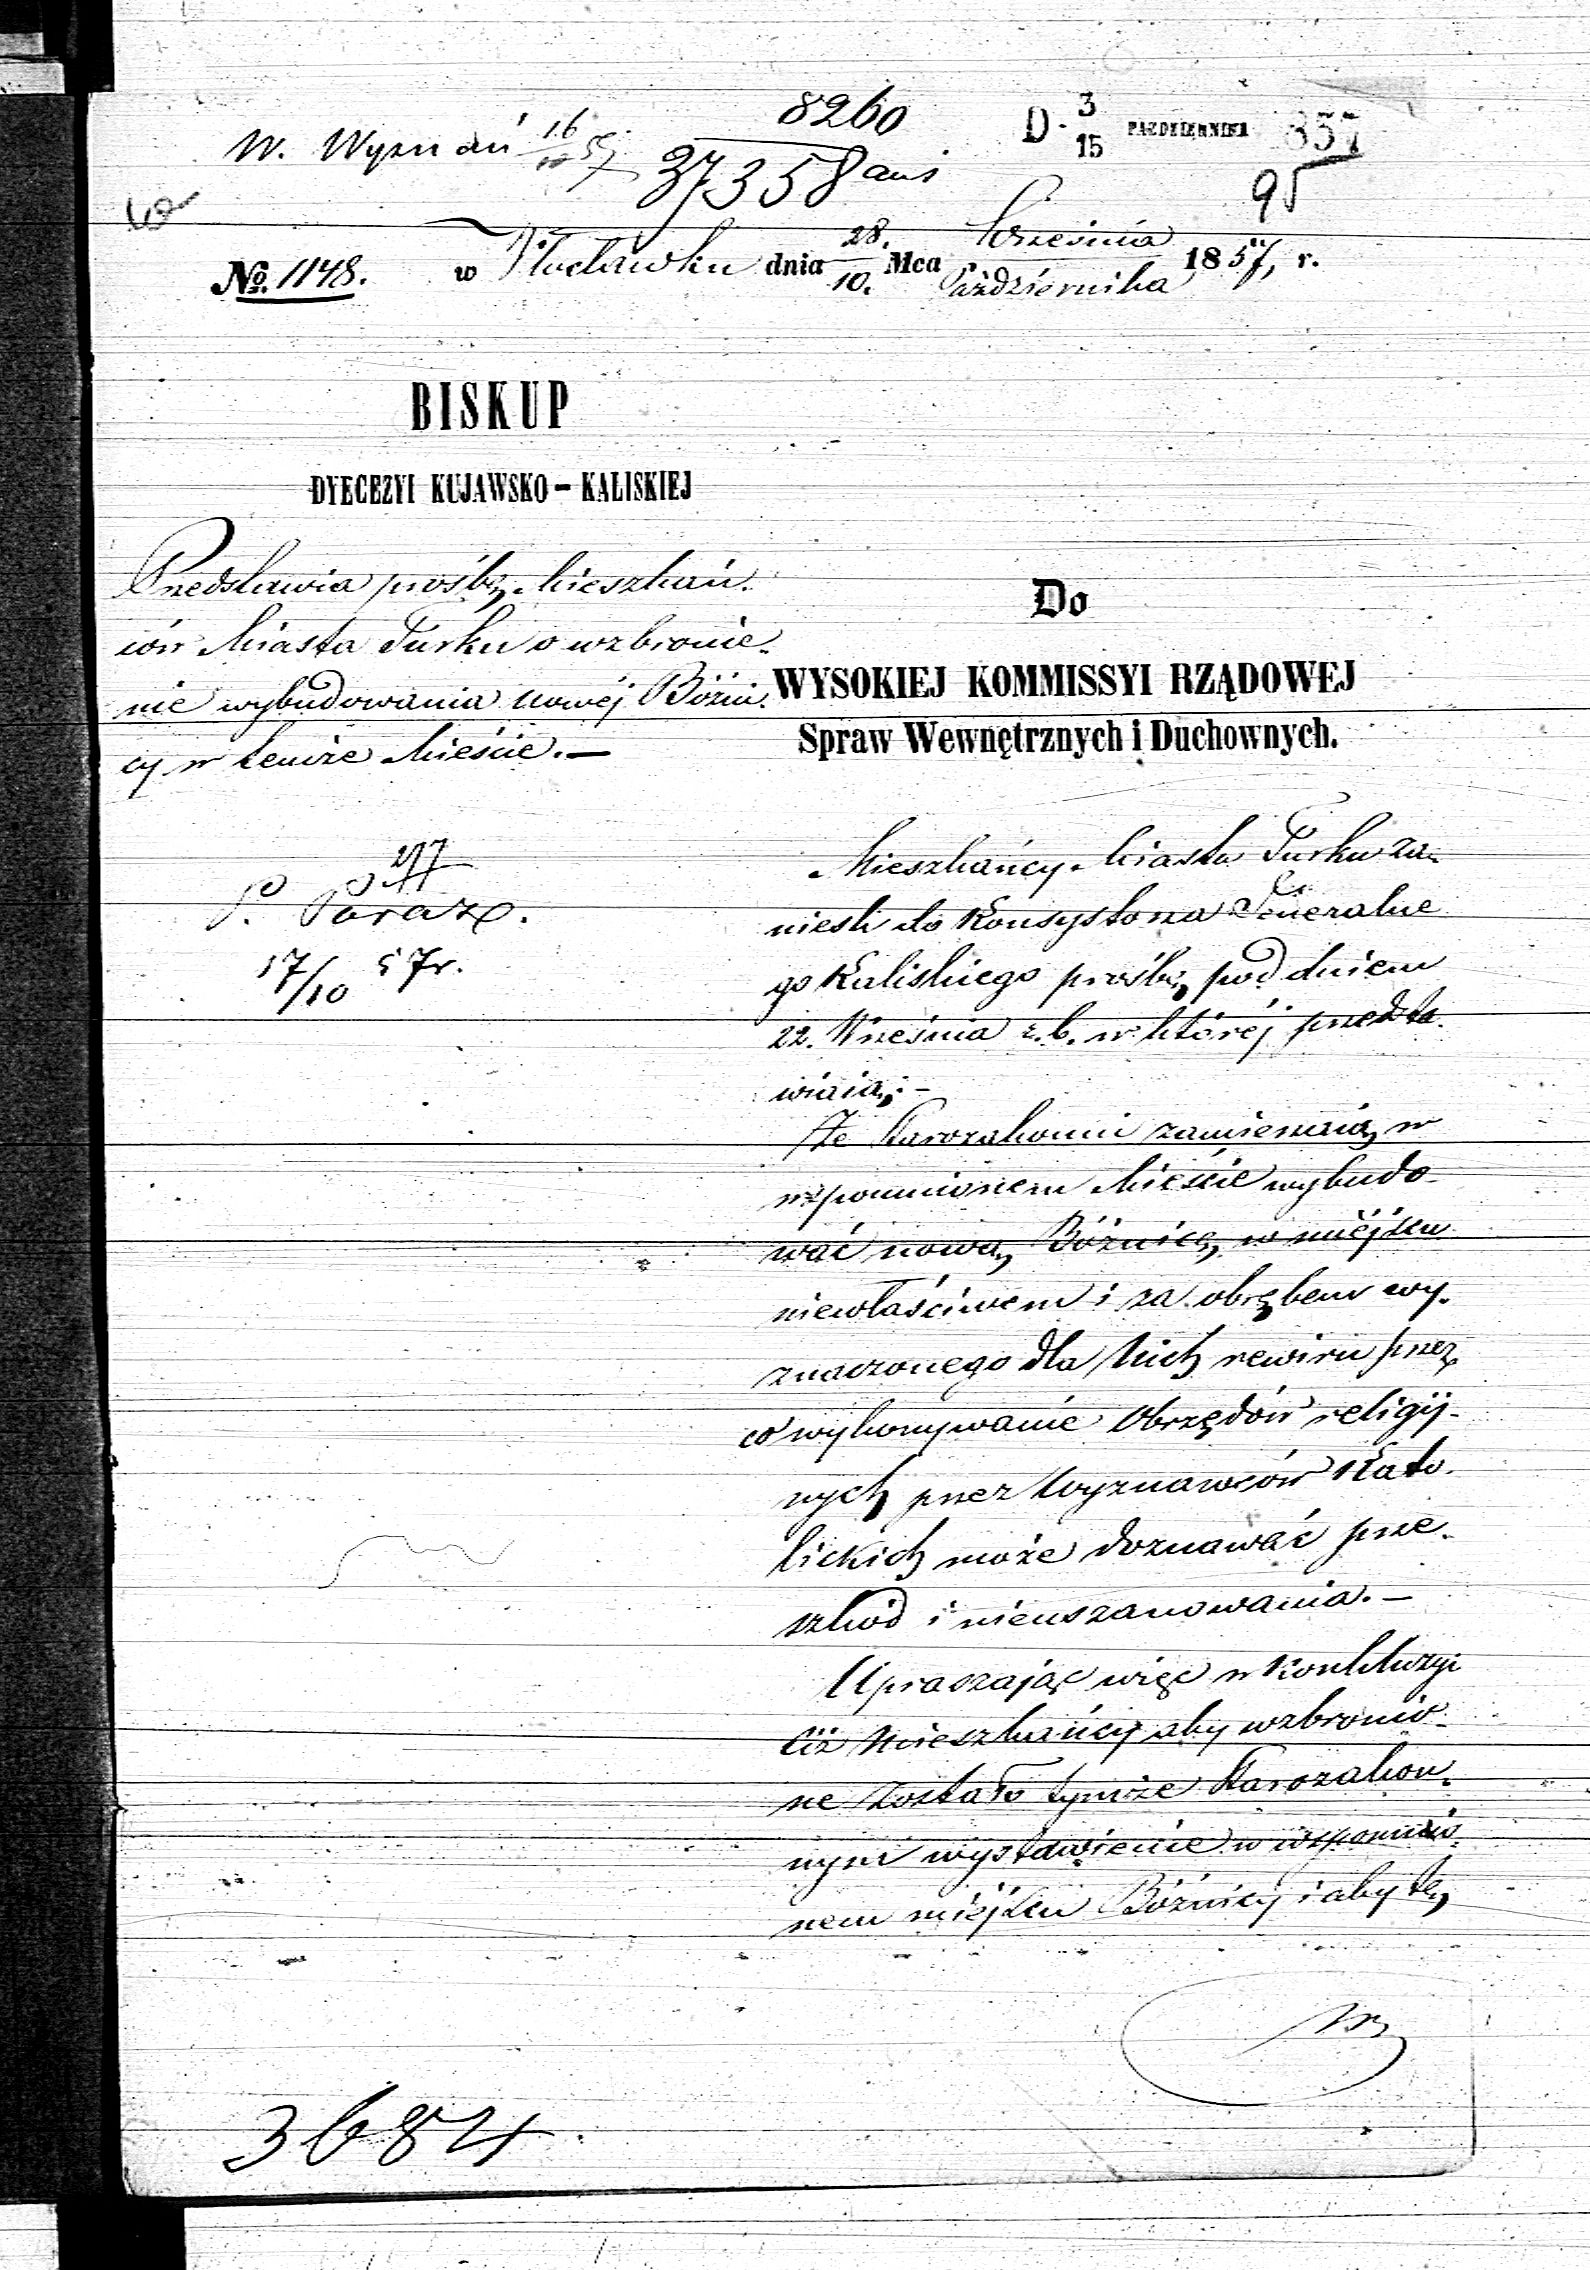 8260
W. Wyznań 16/10 57
37358
D. 3/15 PAŹDZIERNIKA 857
95
No. 1148. w Włocławku dnia 28./10. Mca Września/Października 1857, r.
BISKUP
DYECEZYI KUJAWSKO – KALISKIEJ
Przedstawia prośbę Mieszkań-
ców Miasta Turku o wzbronie-
nie wybudowania nowéj Bóźni-
cy w temże Mieście. –
Do
WYSOKIEJ KOMMISSYI RZĄDOWEJ
Spraw Wewnętrznych i Duchownych.
277
P.
17/10 57r.
Mieszkańcy Miasta Turku za-
nieśli do Konsystorza Jeneralne
go Kaliskiego prośbę pod dniem
22. Września r. b. w któréj przedsta-
wiaią: –
Że Starozakonni zamierzaią w
wspomnionem Mieście wybudo-
wać nową Bóźnicę w miéjscu
niewłaściwem i za obrębem wy-
znaczonego dla Nich rewiru przez
co wykonywanie Obrzędów religij-
nych przez Wyznawców Kato-
lickich może doznawać prze-
szkód i nieuszanowania. –
Upraszając więc w Konkluzyi
ciż Mieszkańcy aby wzbronio-
ne zostało tymże Starozakon-
nym wystawienie w wspomnio-
nem miéjscu Bóźnicy i aby tę
3684